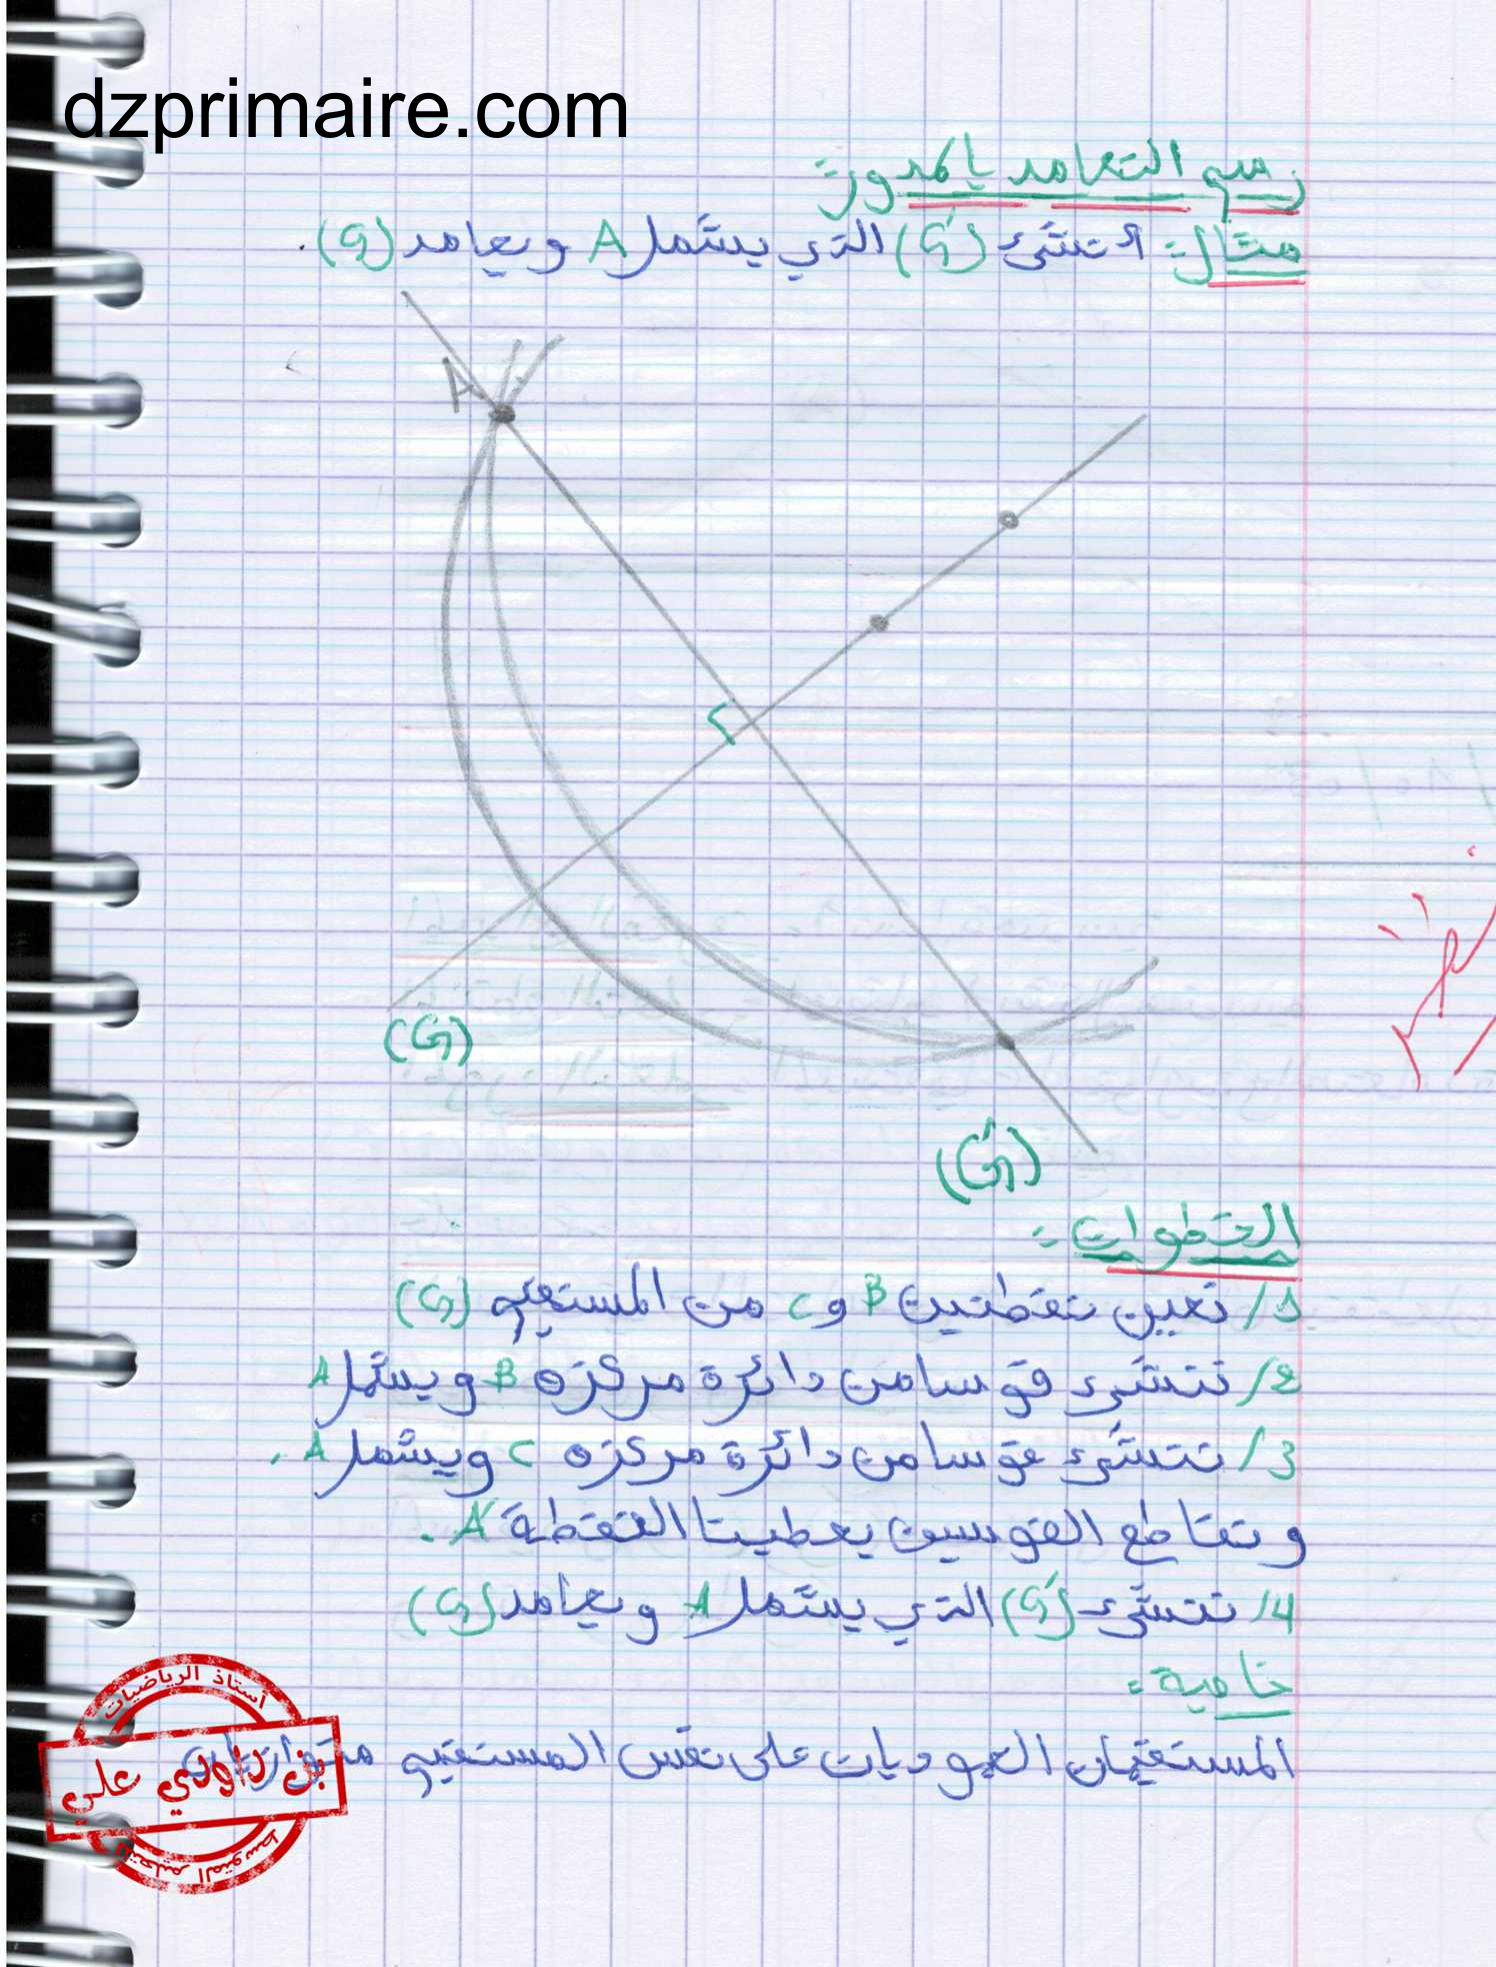 dzprimaire.com
رسم التعامد بالمدور:
مثال: أنشئ (G') الذي يشمل A ويعامد (G).
A
(G)
(G')
الخطوات:
1/ نعين نقطتين B و C من المستقيم (G)
2/ ننشئ قوسا من دائرة مركزه B ويشمل A
3/ ننشئ قوسا من دائرة مركزه C ويشمل A.
وتقاطع القوسين يعطينا النقطة A'.
4/ ننشئ (G') الذي يشمل A ويعامد (G)
خاصية:
المستقيمان العموديان على نفس المستقيم متوازيان
أستاذ الرياضيات
بن داودي علي
للتعليم المتوسط